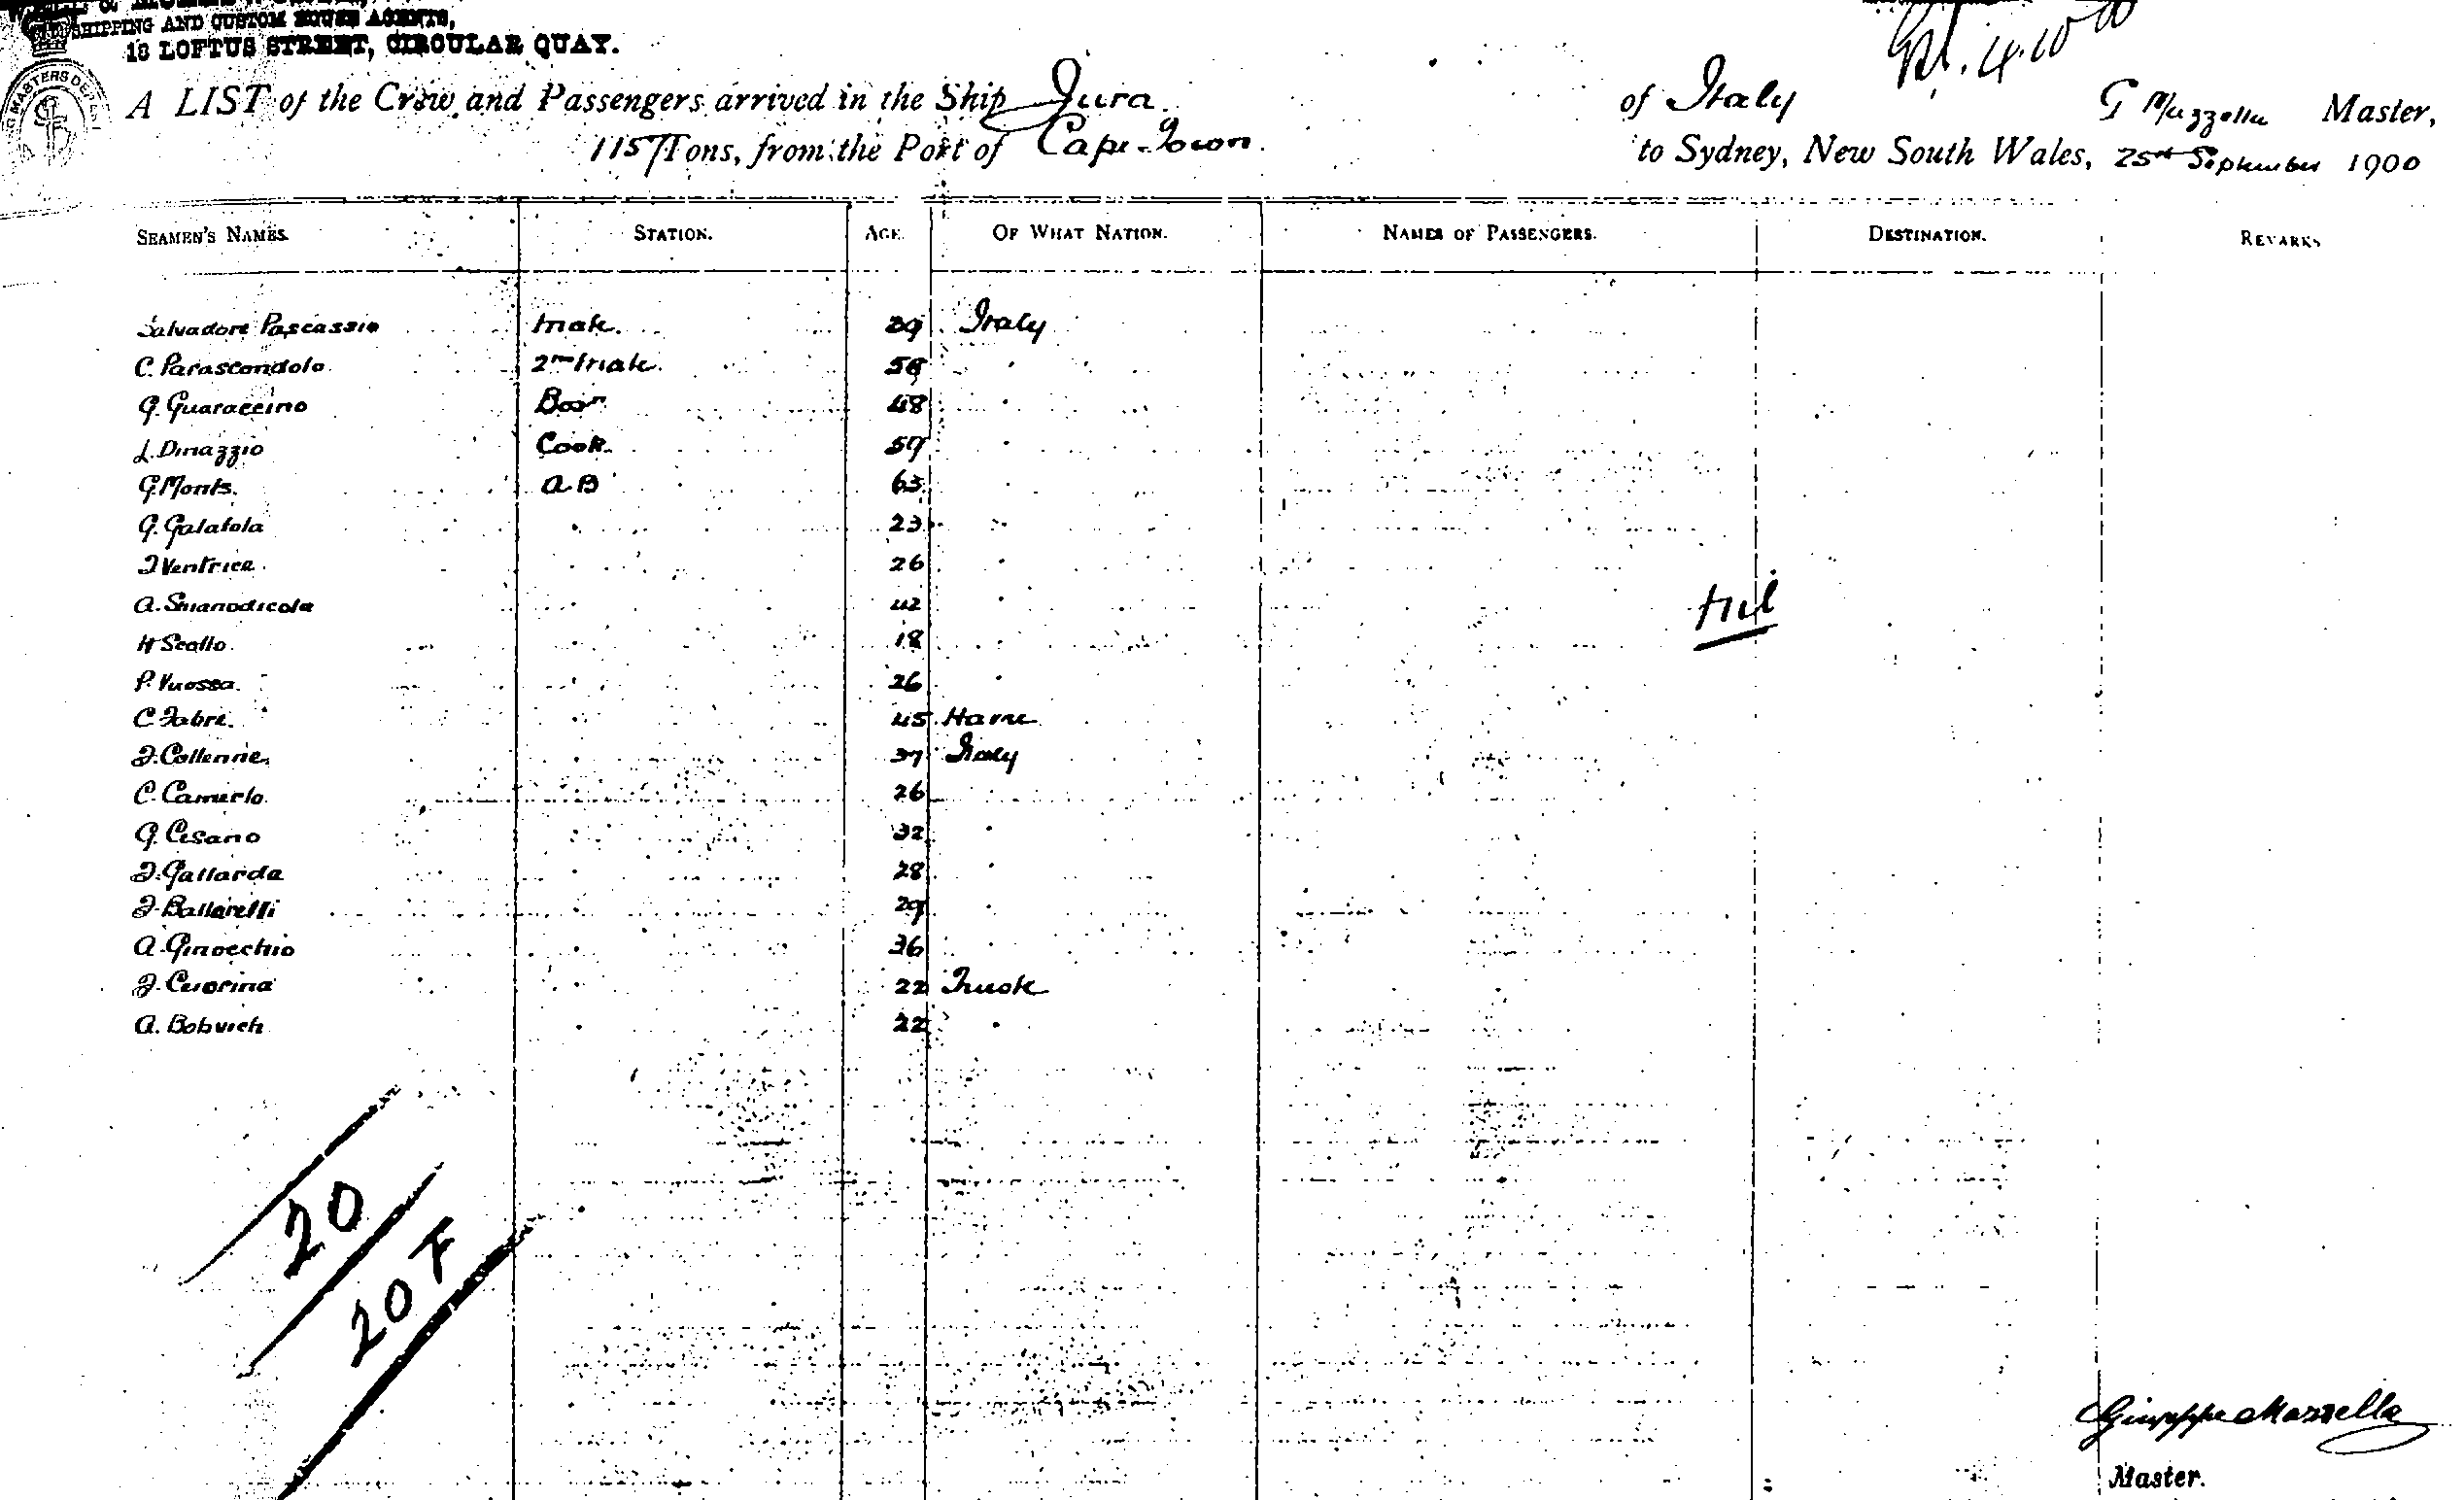 SHIPPING AND CUSTOM HOUSE AGENTS,
18 LOFTUS STREET, CIRCULAR QUAY.
A LIST of the Crew and Passengers arrived in the Ship Jura of Italy G Mazzella Master,
1157 Tons, from the Port of Cape Town to Sydney, New South Wales, 25th September 1900
SEAMEN'S NAMES. STATION. AGE. OF WHAT NATION. NAMES OF PASSENGERS. DESTINATION. REMARKS
Salvadore Pascassio Mate. 29 Italy
C. Parascondolo 2nd Mate. 56 "
G. Guaraccino Bosn 48 "
L. Dimazzio Cook. 59 "
G. Monts. A.B 63 "
G. Galatola " 23 "
J Ventrice. " 26 "
A. Smanodicola " 42 "
H Scotto. " 18 "
Nil
P. Vuossa. " 26 "
C Fabre. " 45 Havre
J. Collenne, " 37 Italy
C. Camerlo. " 26 "
G. Cesano " 32 "
J. Gallarda " 28 "
J. Ballarelli " 29 "
A. Ginocchio " 36 "
J. Ceiorina " 22
A. Bobvich " 22 "
20
20 F
Giuseppe Mazzella
Master.